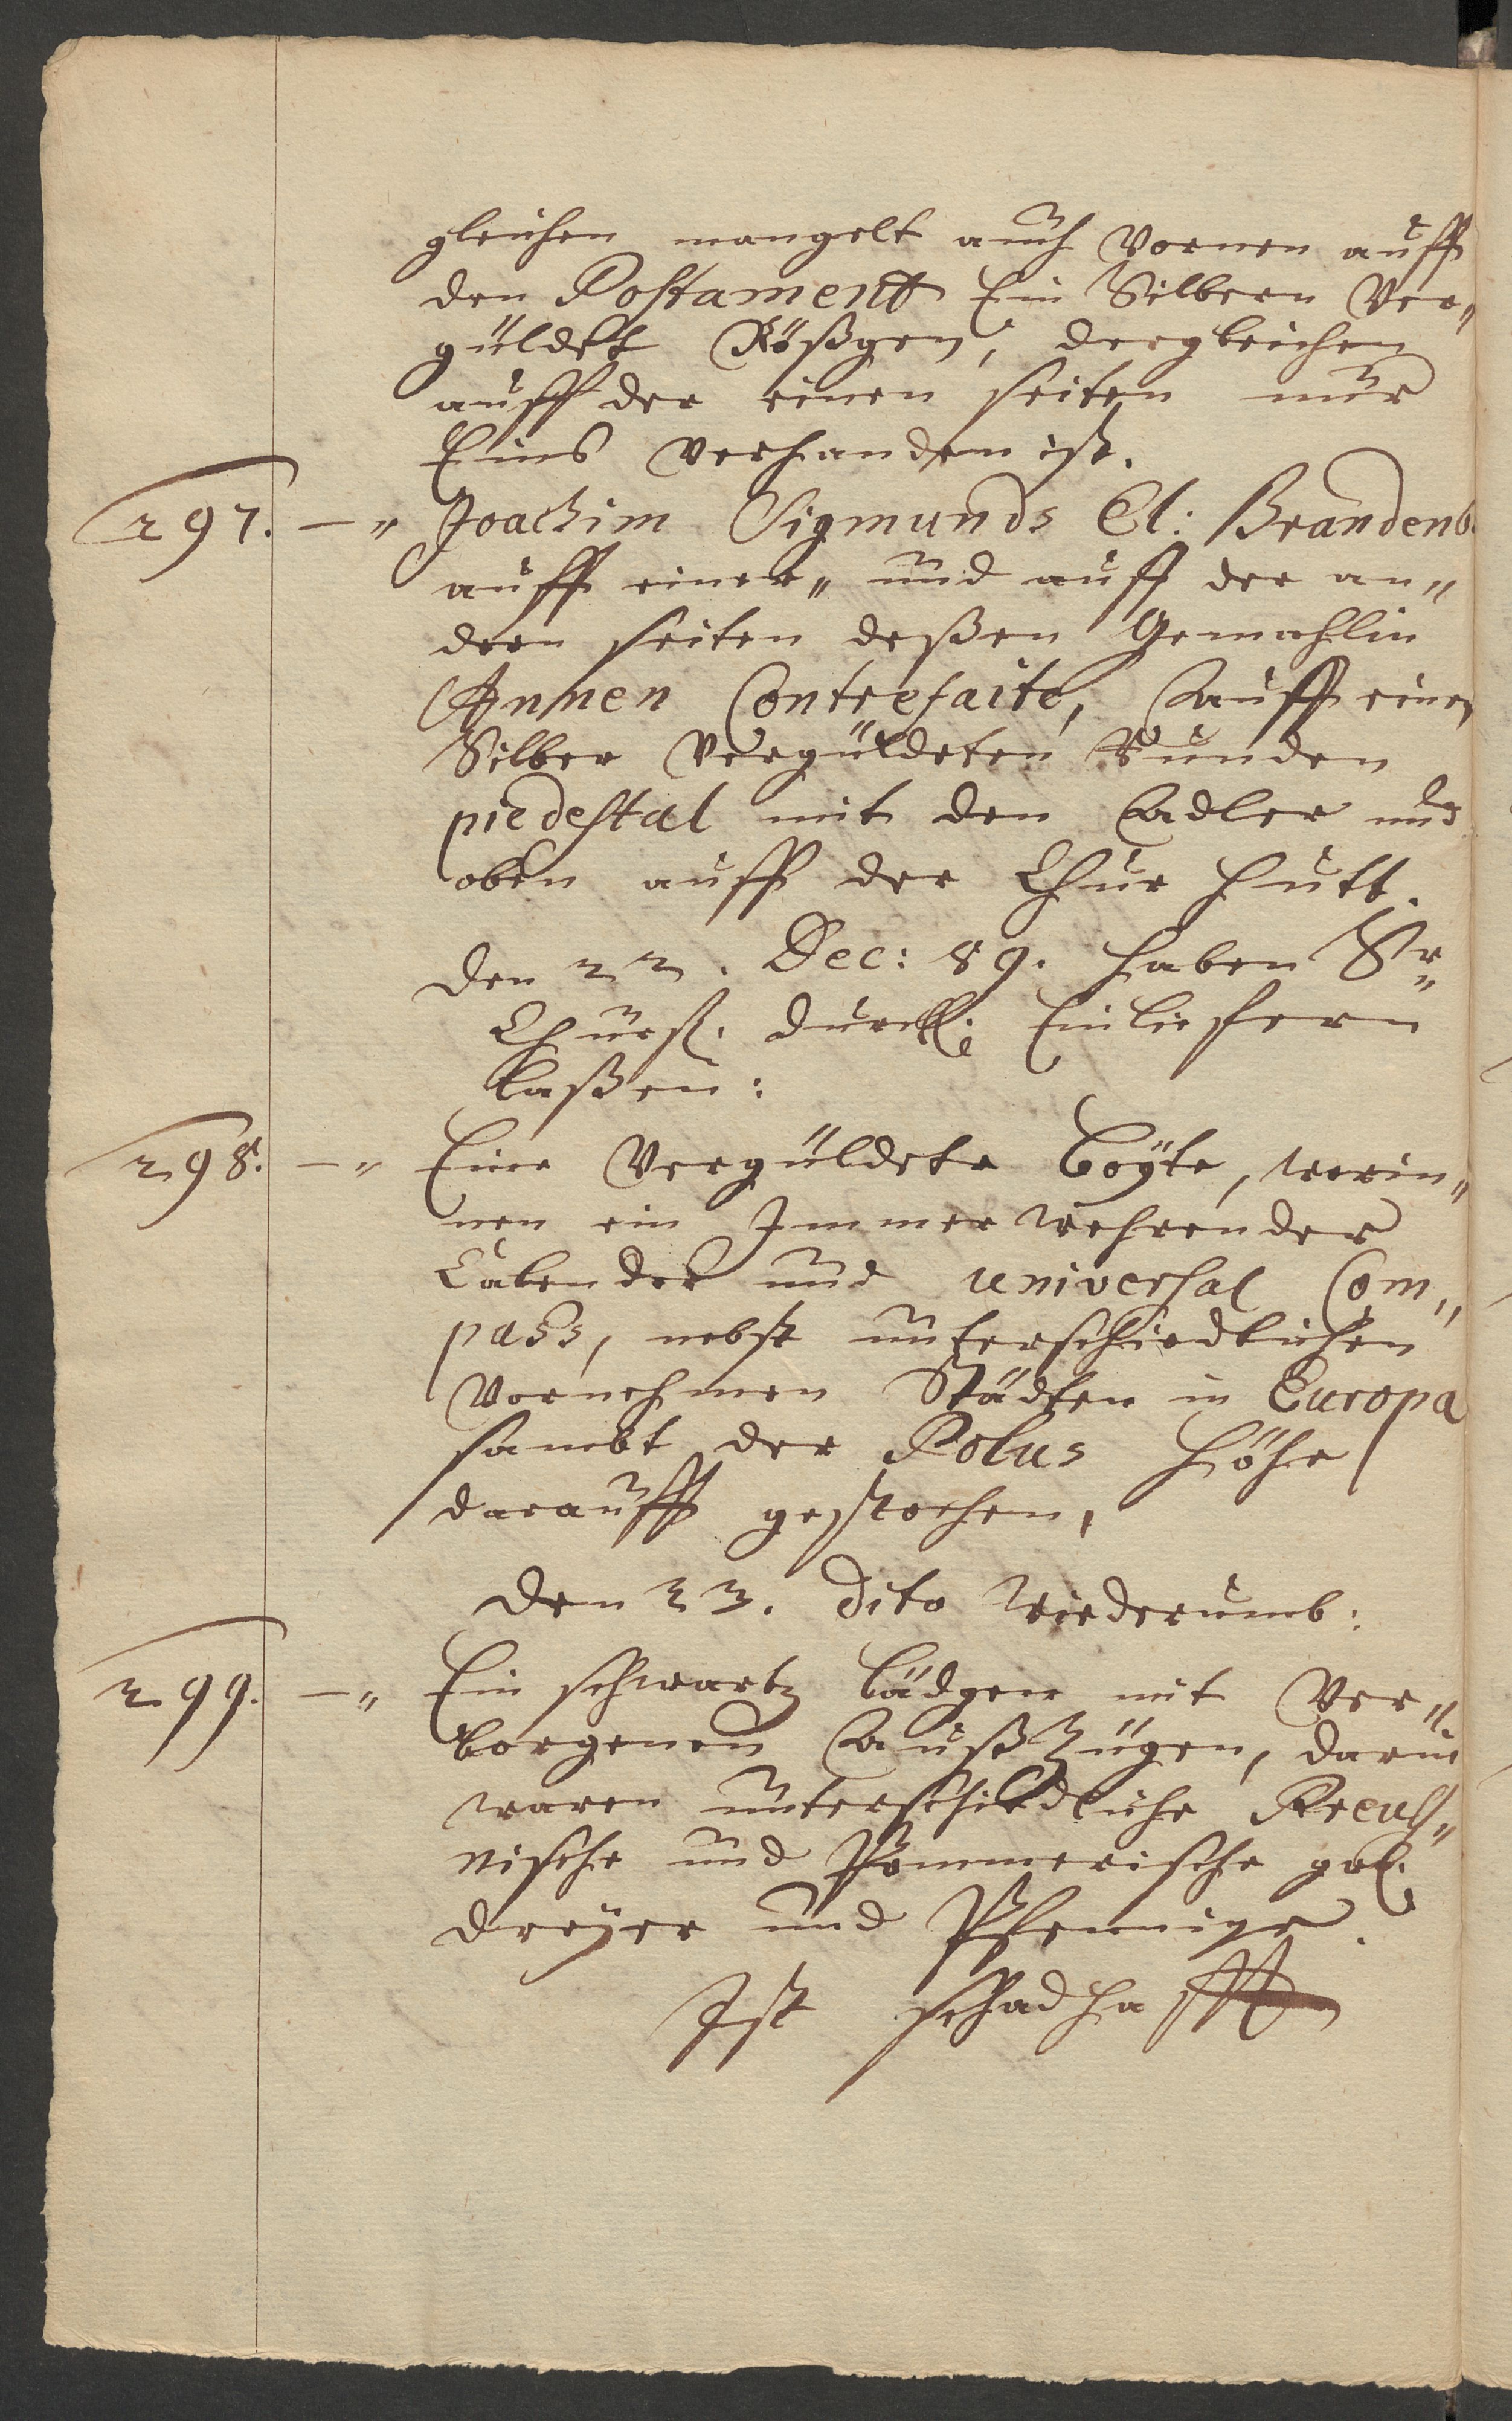 gleichen mangelt auch vornen auff
den Postament Ein Silbern Ver„
güldet Rößgen, dergleichen
auff der einen seiten nur
Eins verhanden ist.
297. —„ Joachim Sigmunds El: Brandenb.
auff einer„ und auff der an„
dern seiten deßen Gemahlin
Annen Contrefaite, auff einen
Silber Vergüldeten Runden
piedestal mit den Adler und
oben auff der Chur Hutt.
Den 22. Dec: 89. haben Sr„
Churfl. Durchl. Einliefern
laßen:
298. —„ Eine Vergüldete Boyte, worin„
nen ein Immer wehrender
Calender und universal Com„
pass, nebst unterschiedlichen
Vornehmen Städten in Europa
sambt der Polus Höhe
darauff gestochen,
Den 23. Dito Wiederumb:
299. —„ Ein schwartz Lädgen mit Ver„
borgenen Außzügen, darin
waren unterschiedliche Preuß„
nische und Pommerische
dreyer und Pfennige.
Ist schadhafft